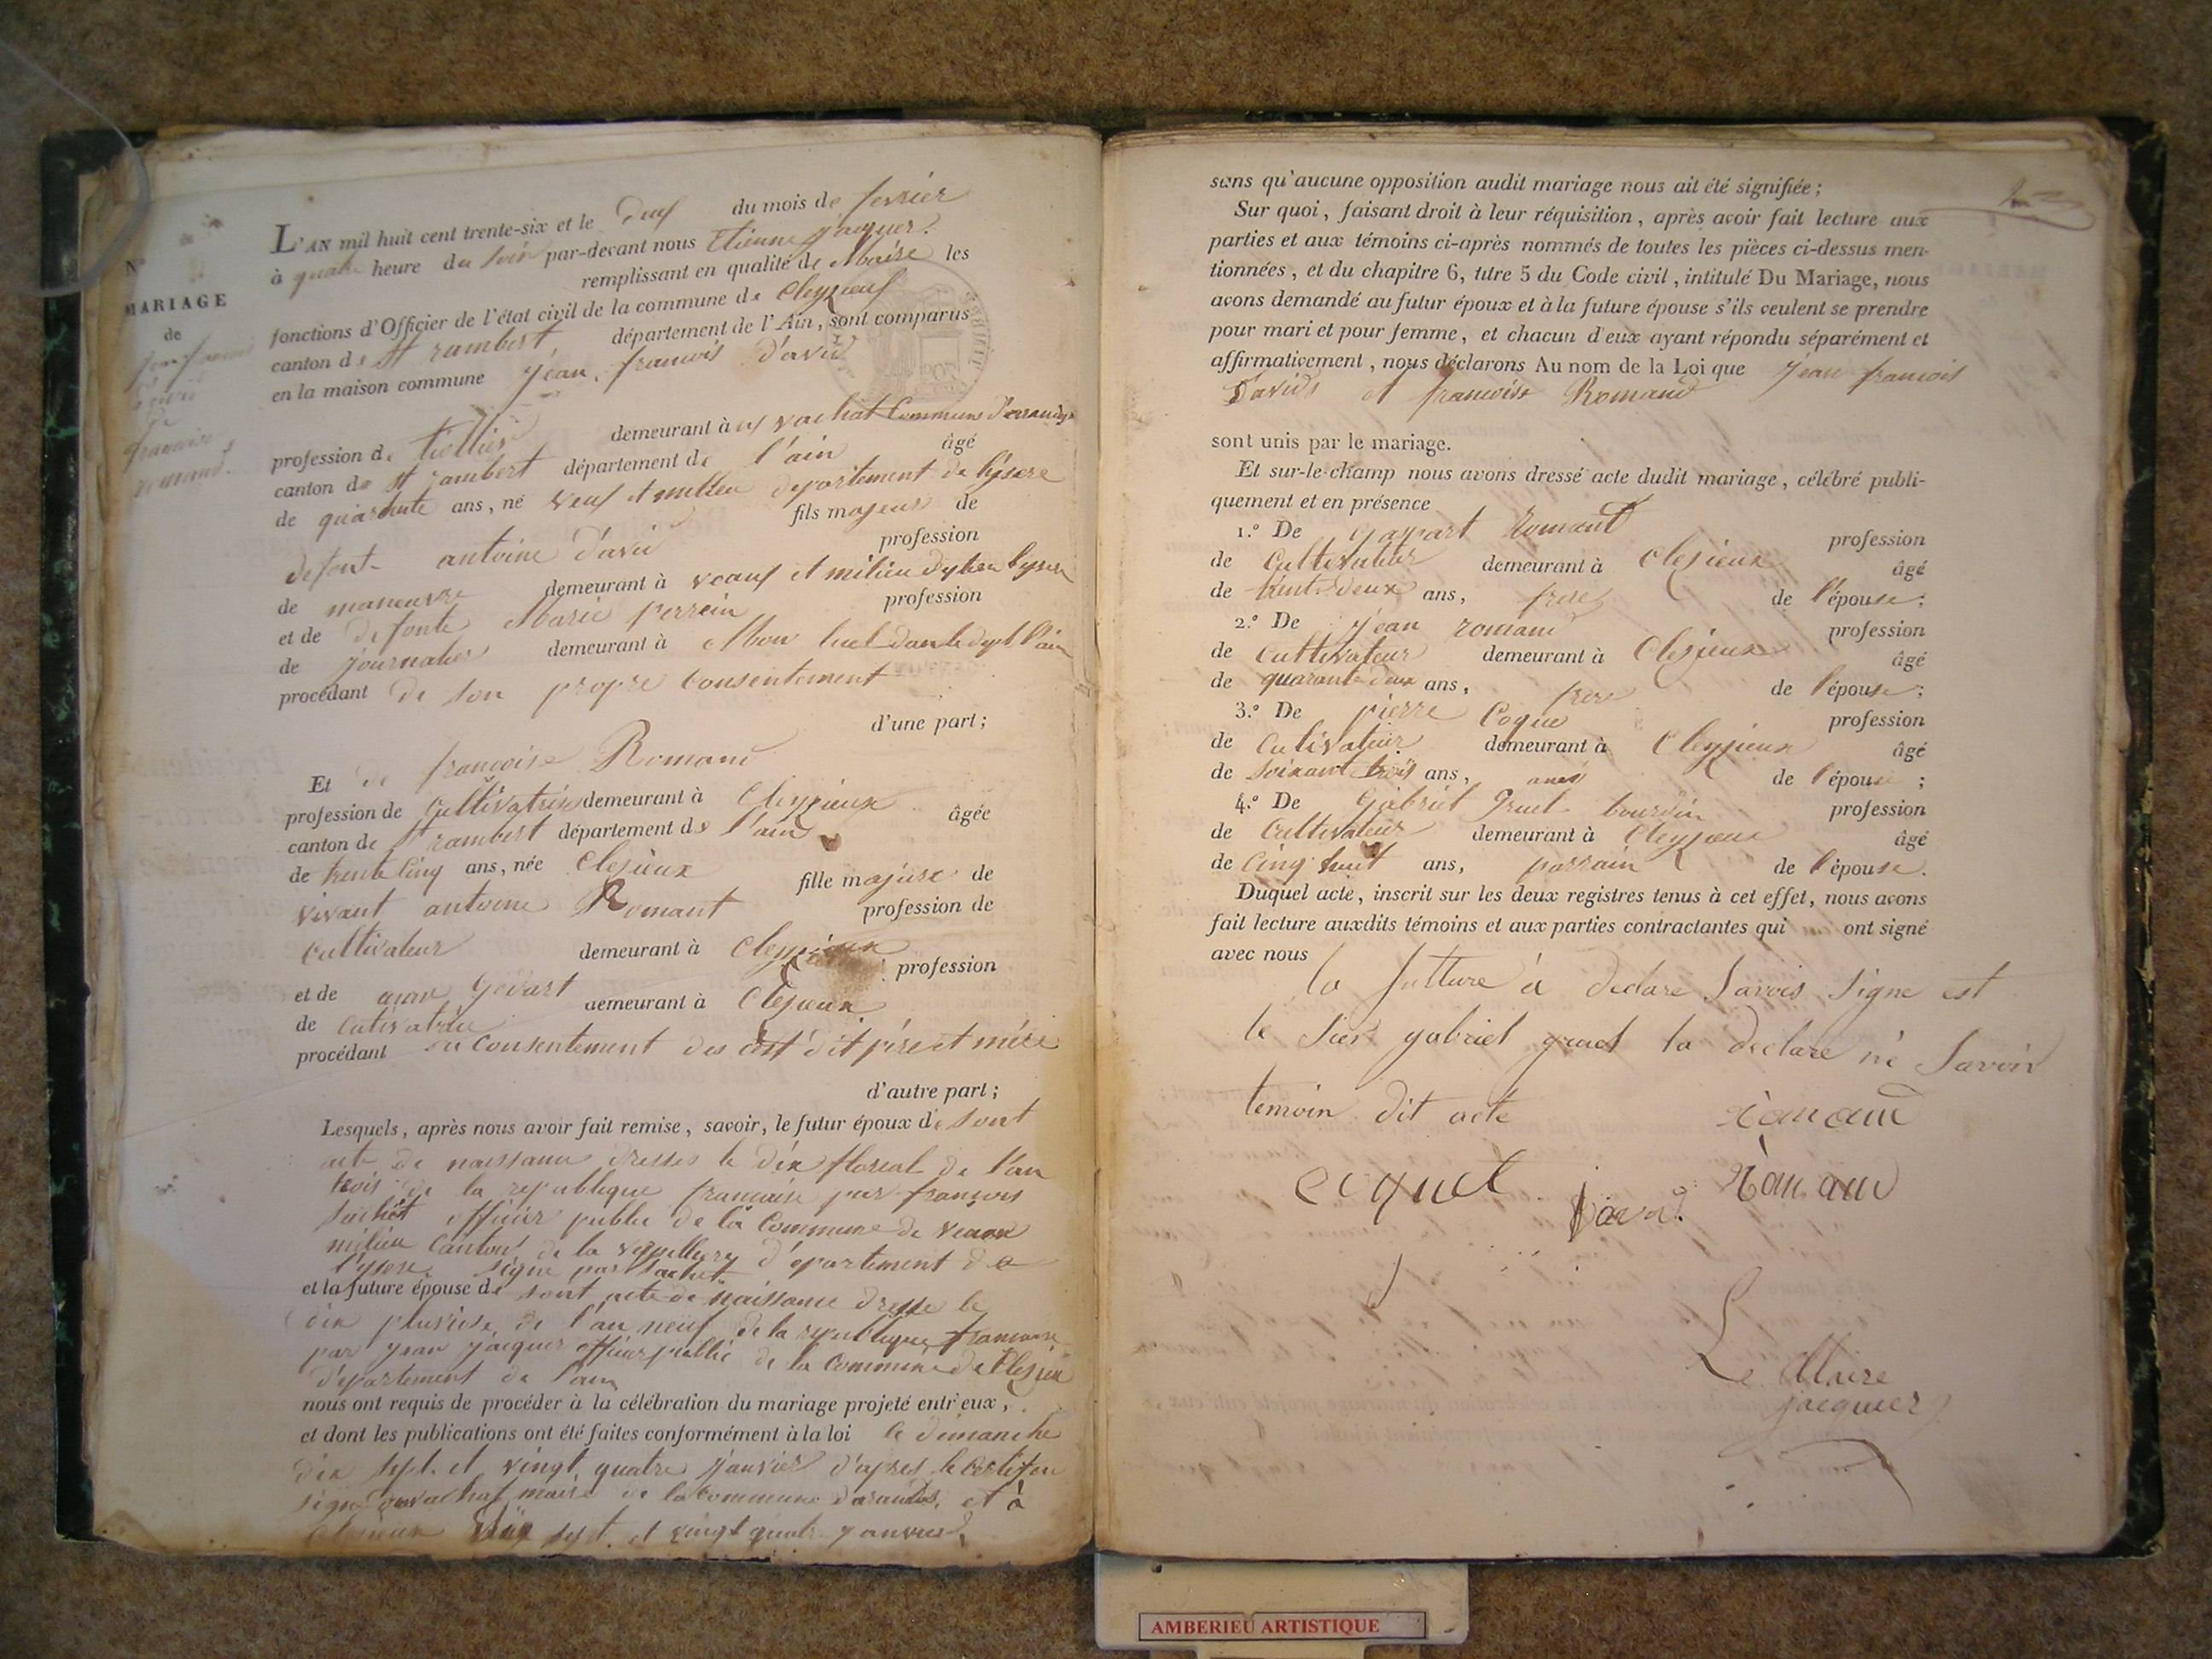 N°
MARIAGE
de
francoise
romand
L'AN mil huit cent trente-six et le Deuf du mois de fevrier
à quatre heure du soir par-devant nous Etienne jacquer
remplissant en qualité de Maire les
fonctions d'Officier de l'état civil de la commune de Cleyzieuf
canton de St rambert département de l'Ain, sont comparus
en la maison commune jéan francois d'avid
profession de demeurant à vachat Commune
canton de St rambert département de l'ain âgé
de quarante ans, né veuf et millieu departement de lysere
fils majeur de
defont antoine d'avid profession
de maneuvre demeurant à veauf et milieu
et de defonte Marie perrein profession
de journalier demeurant à Mon luel dans le dept l'ain
procédant de son propre consentement
d'une part;
Et de francoise Romand
profession de Cultivatrise demeurant à Cleyzieux âgée
canton de St rambert département de l'ain
de trente cinq ans, née Clesieux fille majeure de
vivant antoine Romant profession de
cultivateur demeurant à Cleyzieux
et de godart profession
de cutivatrice demeurant à Clesieux
procédant au consentement des dit pére et mére
d'autre part;
Lesquels, après nous avoir fait remise, savoir, le futur époux de sont
acte de naissance dresses le dix floreal de l'an
trois de la republique francaise par françois
officier public de la Commune de veaux
milieu Canton de la verpelliere d'epartement de
l'ysere signe par
et la future épouse de sont acte de naissance dresse le
dix pluviose de l'an neuf de la republique francaise
par jean jacquer officier public de la Commune de Clesieux
d'epartement de l'ain
nous ont requis de procéder à la célébration du mariage projeté entr'eux,
et dont les publications ont été faites conformément à la loi le dimanche
dix sept et vingt quatre janvier d'apres le
signe maire de la commune d'arandas, et à
Clesieux dix sept et vingt quatre janvier
sans qu'aucune opposition audit mariage nous ait été signifiée;
Sur quoi, faisant droit à leur réquisition, après avoir fait lecture aux
parties et aux témoins ci-après nommés de toutes les pièces ci-dessus men-
tionnées, et du chapitre 6, titre 5 du Code civil, intitulé Du Mariage, nous
avons demandé au futur époux et à la future épouse s'ils veulent se prendre
pour mari et pour femme, et chacun d'eux ayant répondu séparément et
affirmativement, nous déclarons Au nom de la Loi que jéan francois
Davids et francoise Romand
sont unis par le mariage.
Et sur-le-champ nous avons dressé acte dudit mariage, célébré publi-
quement et en présence
1.° De gaspart Romant profession
de Cultivateur demeurant à Clesieux âgé
de trent deux ans, frere de l'épouse;
2.° De jéan romand profession
de Cultivateur demeurant à Clesieux âgé
de quarant deux ans, frere de l'épouse;
3.° De pierre Coque profession
de Cultivateur demeurant à Cleyzieux âgé
de soixant trois ans, ami de l'épouse;
4.° De Gabriel Gruel bourdin profession
de Cultivateur demeurant à Cleyzieux âgé
de Cinq huit ans, parrain de l'épouse.
Duquel acte, inscrit sur les deux registres tenus à cet effet, nous avons
fait lecture auxdits témoins et aux parties contractantes qui ont signé
avec nous
la future à declare savois signe est
le sier gabriel gruel la declare ne savoir
temoin dit acte Romand
coquet david Romand
Le Maire
jacquer
AMBERIEU ARTISTIQUE